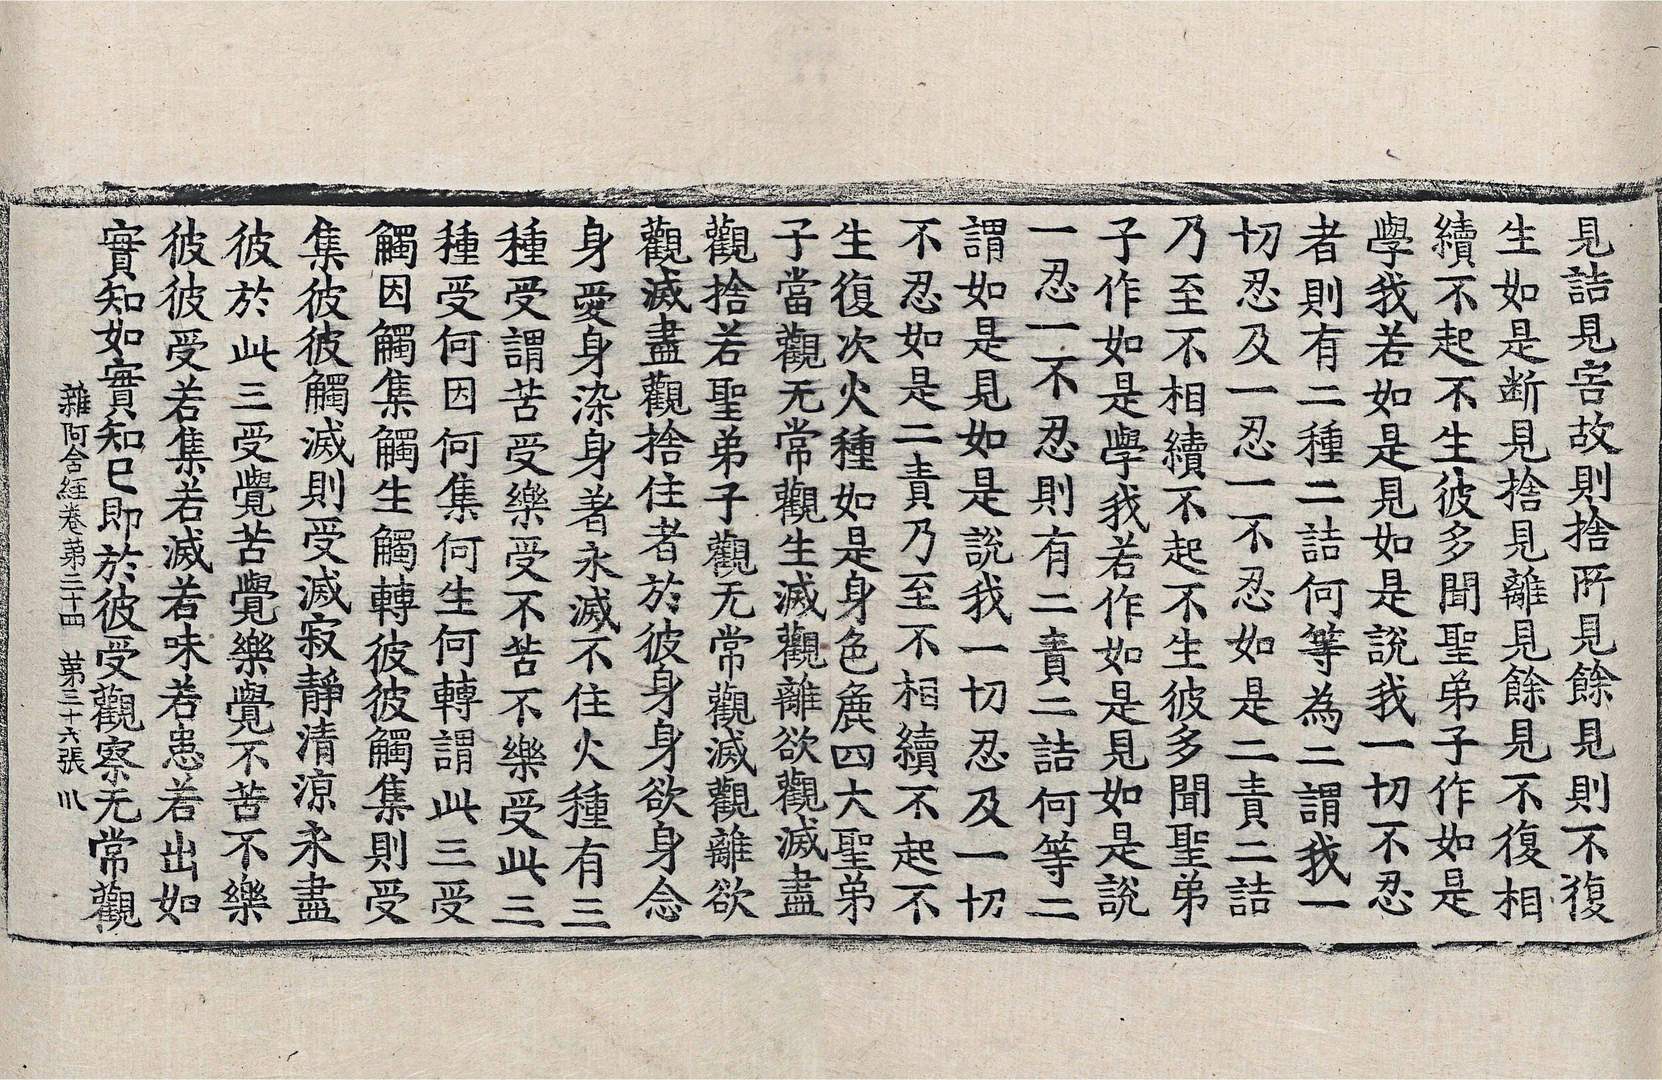 見詰見害故則捨所見餘見則不復
生如是断見捨見離見餘見不復相
續不起不生彼多聞聖弟子作如是
學我若如是見如是說我一切不忍
者則有二種二詰何等為二謂我一
切忍及一忍一不忍如是二責二詰
乃至不相續不起不生彼多聞聖弟
子作如是學我若作如是見如是說
一忍一不忍則有二責二詰何等二
謂如是見如是說我一切忍及一切
不忍如是二責乃至不相續不起不
生復次火種如是身色麁四大聖弟
子當觀无常觀生滅觀離欲觀滅盡
觀捨若聖弟子觀无常觀滅觀離欲
觀滅盡觀捨住者於彼身身欲身念
身愛身染身著永滅不住火種有三
種受謂苦受樂受不苦不樂受此三
種受何因何集何生何轉謂此三受
觸因觸集觸生觸轉彼彼觸集則受
集彼彼觸滅則受滅寂靜清涼永盡
彼於此三受覺苦覺樂覺不苦不樂
彼彼受若集若滅若味若患若出如
實知如實知已即於彼受觀察无常觀
雜阿含経卷苐三十四　苐三十六張　川